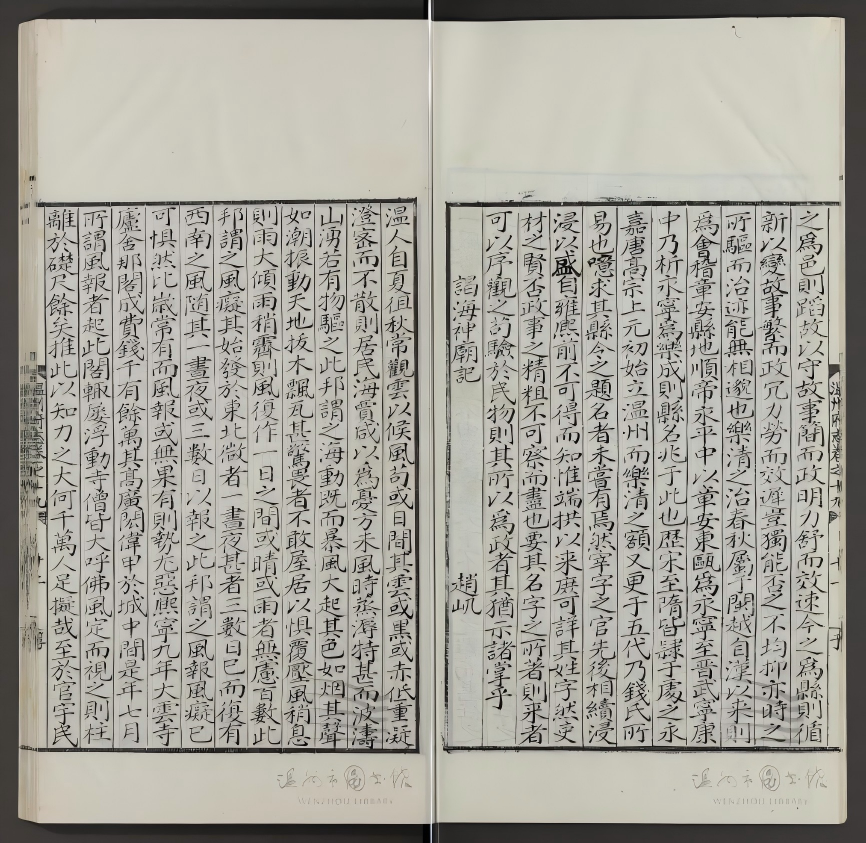 之爲邑則蹈故以守故事簡而政明力舒而效速今之爲縣則循
新以變故事繁而政冗力勞而效遲豈獨能否之不均抑亦時之
所驅而治迹能無相邈也樂清之治春秋屬于閩越自漢以來則
爲會稽章安縣地順帝永平中以章安東甌爲永寧至晉武寧康
中乃析永寧爲樂成則縣名兆于此也歷宋至隋皆隷于處之永
嘉唐髙宗上元初始立溫州而樂清之額又更于五代乃錢氏所
易也噫求其縣令之題名者未嘗有焉然宰字之官先後相續浸
浸以盛自雍熈前不可得而知惟端拱以来庶可詳其姓字然吏
材之賢否政事之精粗不可察而盡也要其名字之所著則来者
可以序觀之訪驗於民物則其所以爲政者其猶示諸掌乎
謁海神廟記 趙屼
溫人自夏徂秋常觀雲以候風苟或日間其雲或黒或赤低重凝
澄宻而不散則居民海賈咸以爲憂方未風時蒸溽特甚而波濤
山湧若有物驅之此邦謂之海動旣而暴風大起其色如烟其聲
如潮振動天地拔木飄瓦甚驚畏者不敢屋居以惧覆壓風稍息
則雨大傾雨稍霽則風復作一日之間或晴或雨者無慮百數此
邦謂之風癡其始發於東北微者一晝夜甚者三數日已而復有
西南之風随其一晝夜或三數日以報之此邦謂之風報風癡已
可惧然比嵗常有而風報或無果有則勢尤惡熈寧九年大雲寺
廬舍那閣成費錢千有餘萬其髙廣閎偉甲於城中間是年七月
所謂風報者起此閣輙屢浮動寺僧皆大呼佛風定而視之則柱
離於礎尺餘矣推此以知力之大何千萬人足擬哉至於官宇民
溫州府志卷之十九 十一
溫州府志卷之十九 十二
溫州市圖書館
WENZHOU LIBRARY
溫州市圖書館
WENZHOU LIBRARY